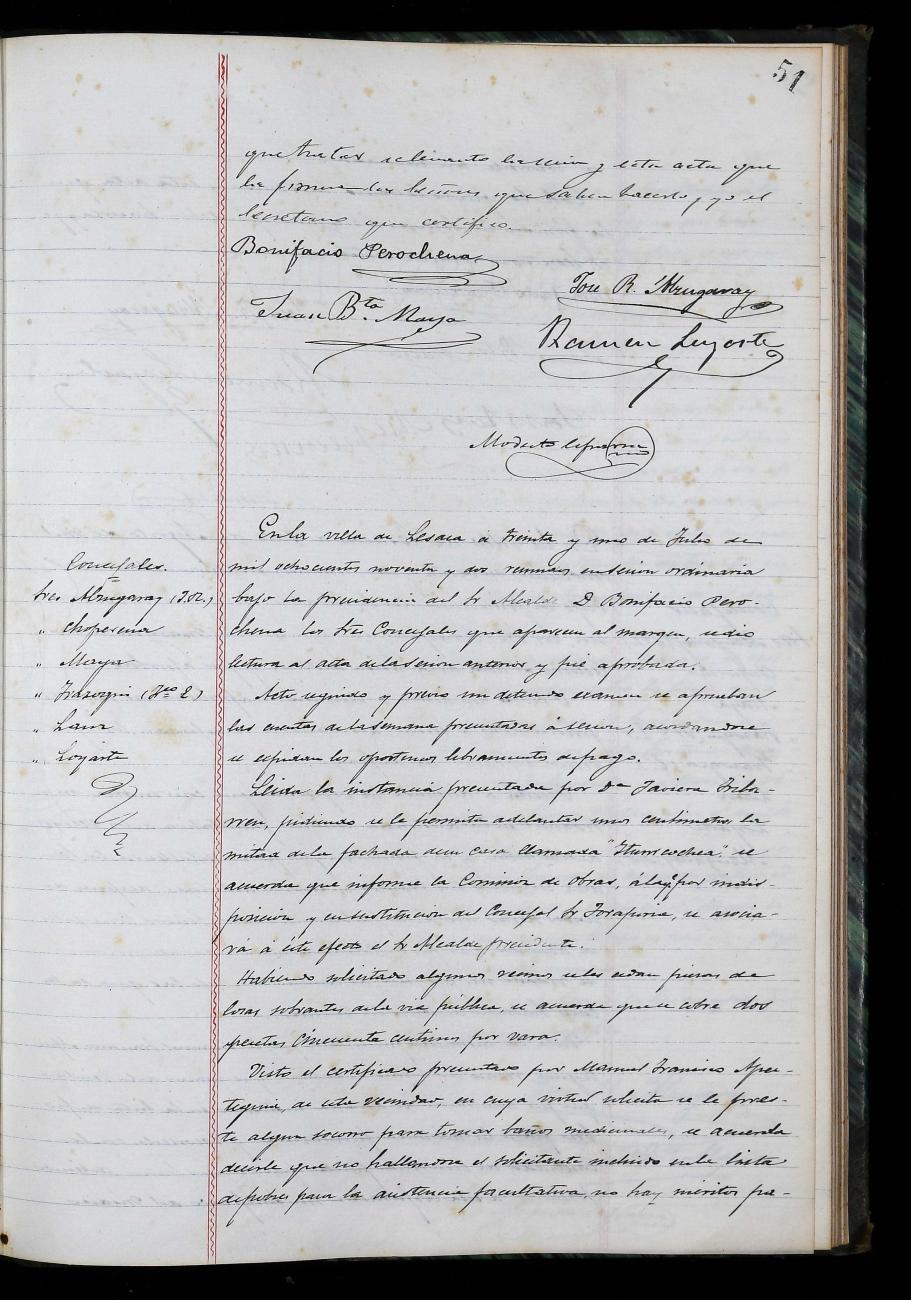 51
que tratar se levantó la sesión y esta acta que
la firman los Señores que saben hacerlo, y yo el
Secretario que certifico.
Bonifacio Perochena
José R. Abrugaray
Juan Bta Maya
Ramon Loyarte
Modesto
En la villa de Lesaca á treinta y uno de Julio de
mil ochocientos noventa y dos reunidos en sesion ordinaria
bajo la presidencia del Sr Alcalde D Bonifacio Pero-
chena los Sres Concejales que aparecen al margen, se dio
lectura al acta de la sesion anterior y fué aprobada.
Concejales.
Sres Abrugaray (J.R.)
" Choperena
" Maya
" (Fco )
"
" Loyarte
Acto seguido y previo un detenido examen se aprueban
las cuentas de la semana presentadas á sesion, acordandose
se espidan los oportunos libramientos de pago.
Leida la instancia presentada por Da Javiera Iriba-
rren, pidiendo se le permita adelantar unos centimetros la
mitad de la fachada de su casa llamada "Iturricochea", se
acuerda que informe la Comision de obras, á la q. por indis-
posicion y en sustitucion del Concejal Sr , se asocia-
rá á este efecto el Sr Alcalde presidente.
Habiendo solicitado algunos vecinos se les cedan piezas de
losas sobrantes de la via pública, se acuerda que se cobre dos
pesetas cincuenta centimos por vara.
Visto el certificado presentado por Manuel Francisco Apez-
teguia, de esta vecindad, en cuya virtud solicita se le pres-
te algun socorro para tomar baños medicinales, se acuerda
decirle que no hallandose el solicitante incluido en la lista
de pobres para la asistencia facultativa, no hay meritos pa-